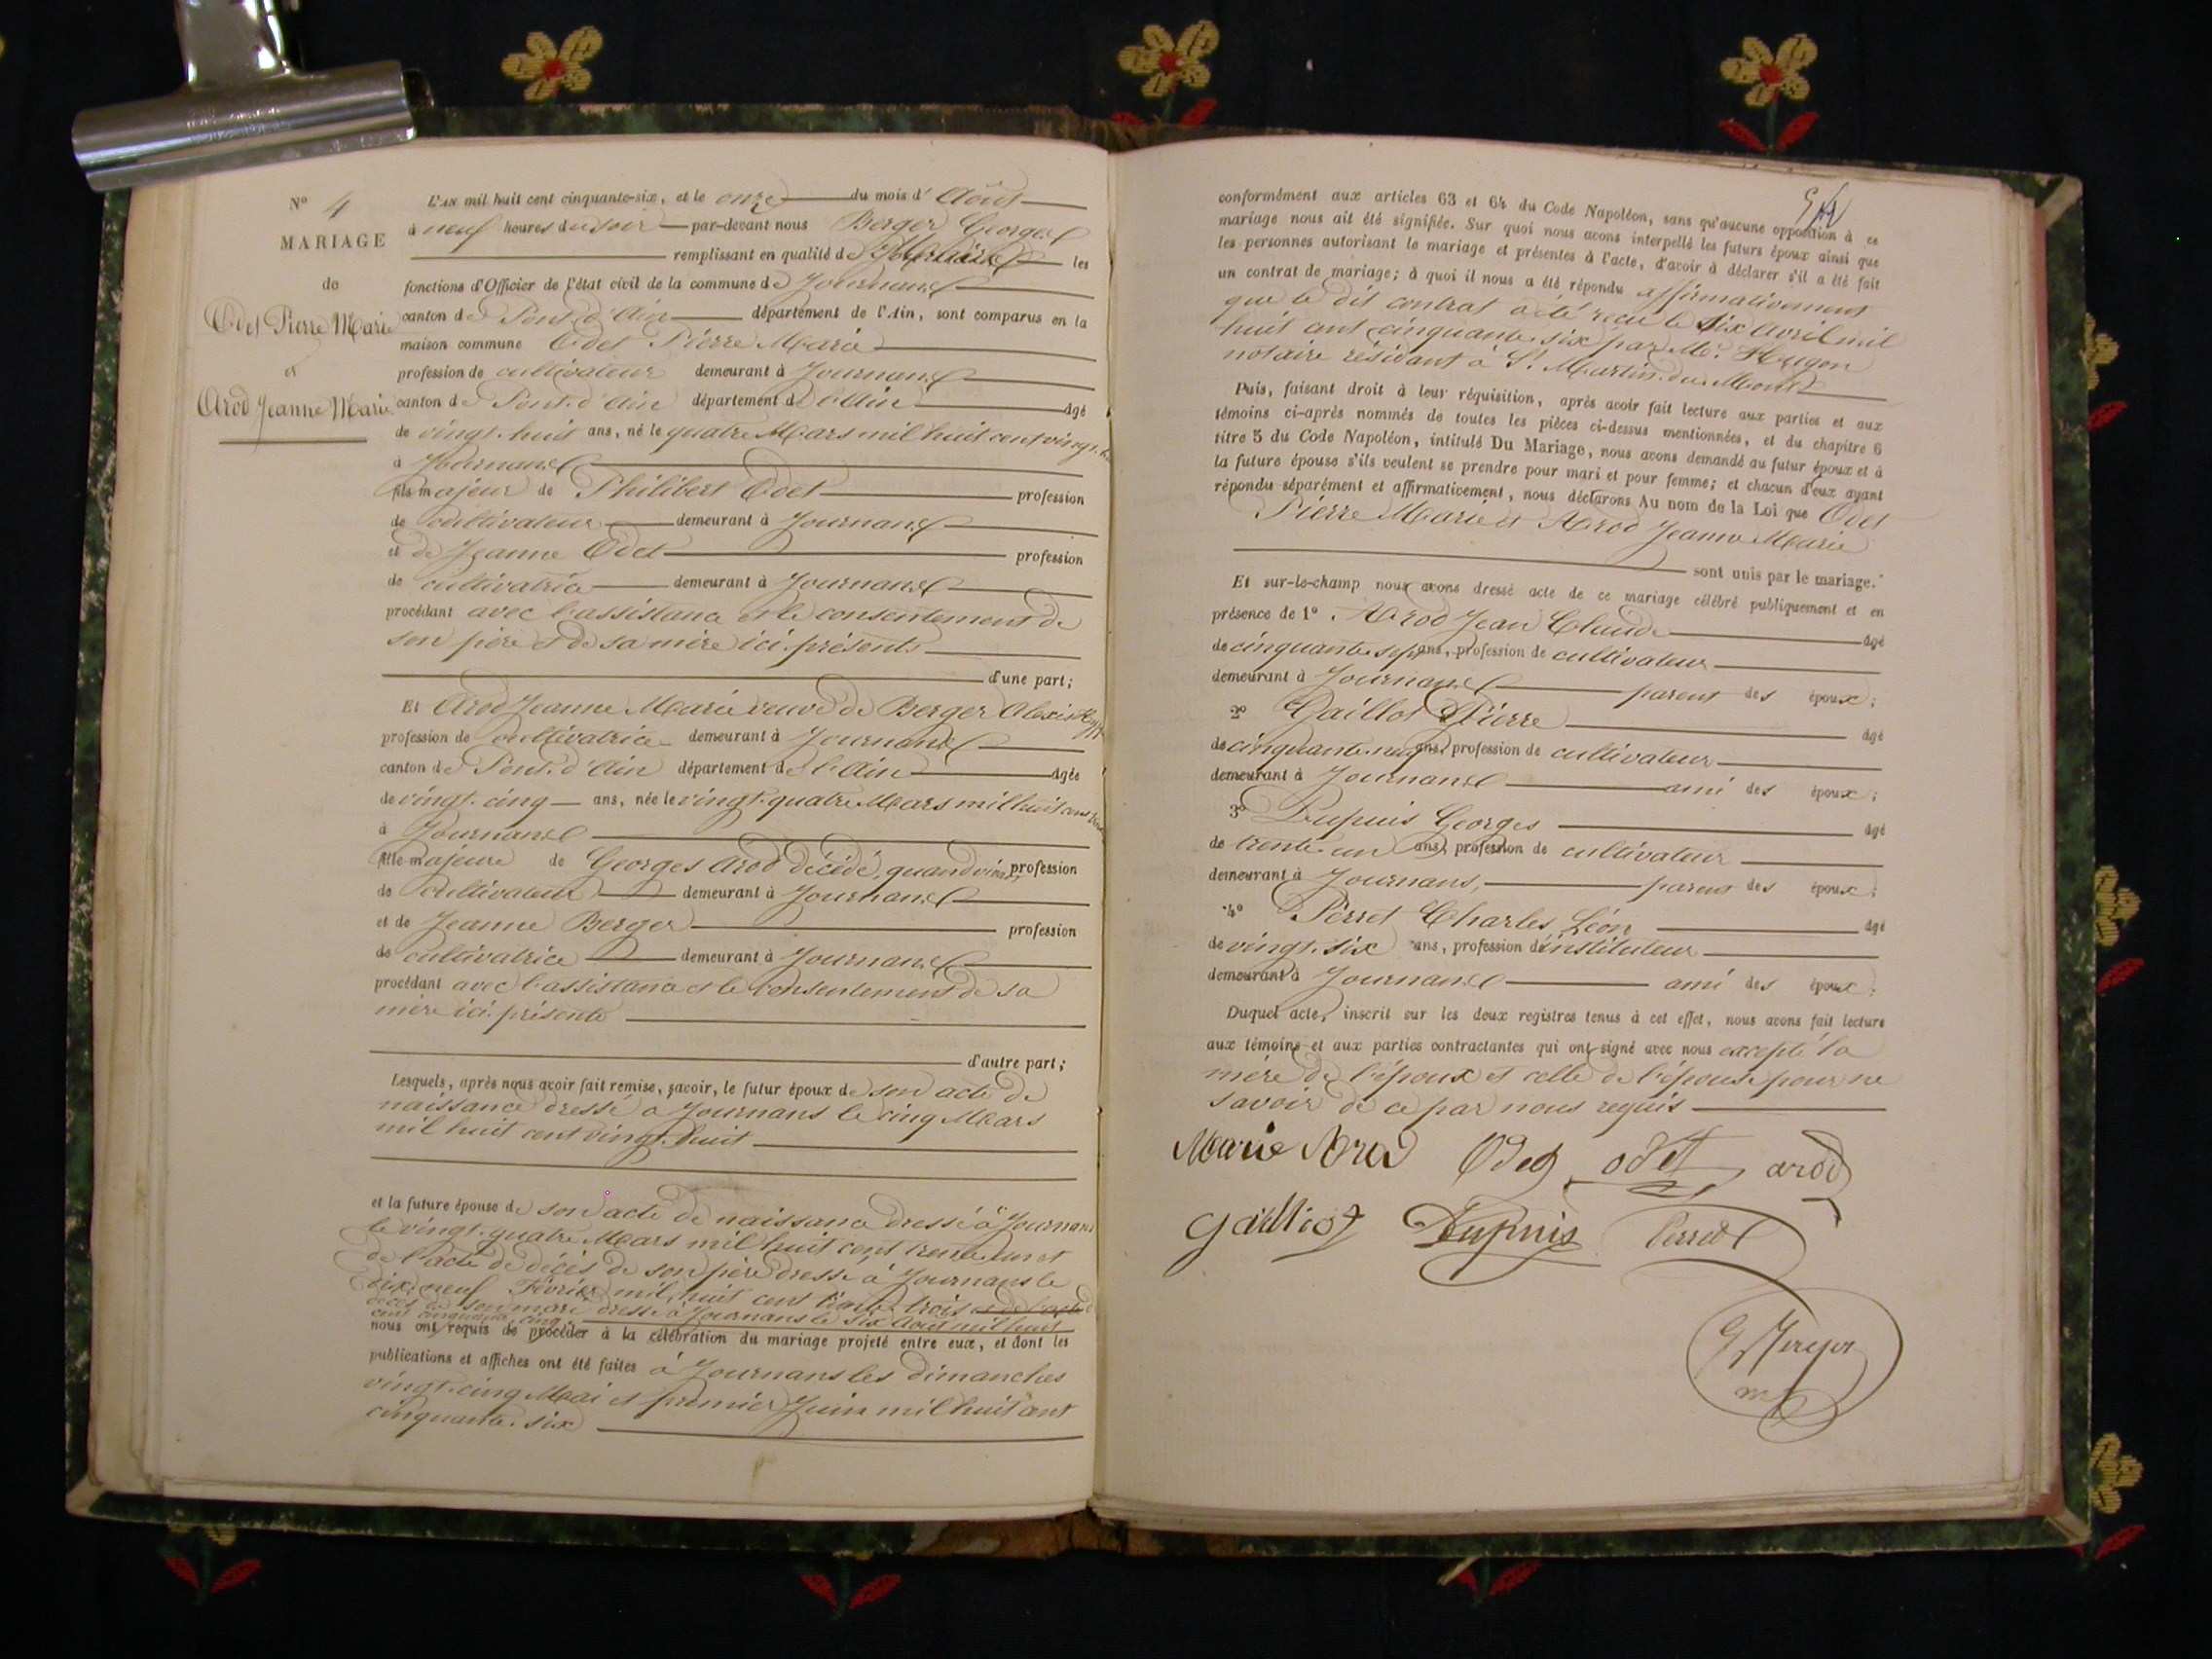 N° 4
MARIAGE
de
Odet Pierre Marie
et
Arod Jeanne Marie
L'AN mil huit cent cinquante-six, et le onze du mois d'Août
à neuf heures du soir par-devant nous Berger Georges
remplissant en qualité de Maire les
fonctions d'Officier de l'état civil de la commune de Journans
canton de Pont d'Ain département de l'Ain, sont comparus en la
maison commune Odet Pierre Marie
profession de cultivateur demeurant à Journans
canton de Pont d'Ain département de l'Ain âgé
de vingt-huit ans, né le quatre Mars mil huit cent vingt
à Journans
fils majeur de Philibert Odet profession
de cultivateur demeurant à Journans
et de Jeanne Odet profession
de cultivatrice demeurant à Journans
procédant avec l'assistance et le consentement de
son père et de sa mère ici présents
d'une part;
Et Arod Jeanne Marie veuve de Berger Alexis
profession de cultivatrice demeurant à Journans
canton de Pont d'Ain département de l'Ain âgée
de vingt-cinq ans, née le vingt-quatre Mars mil huit cent
à Journans
fille majeure de Georges Arod décédé, quand vivait profession
de cultivateur demeurant à Journans
et de Jeanne Berger profession
de cultivatrice demeurant à Journans
procédant avec l'assistance et le consentement de sa
mère ici présente
d'autre part;
Lesquels, après nous avoir fait remise, savoir, le futur époux de son acte de
naissance dressé à Journans le cinq Mars
mil huit cent vingt-huit
et la future épouse de son acte de naissance dressé à Journans
le vingt-quatre Mars mil huit cent trente un et
de l'acte de décès de son père dressé à Journans le
dix-neuf Février mil huit cent trente-trois et de l'acte de
décès de son mari dressé à Journans le six Août mil huit
cent cinquante cinq
nous ont requis de procéder à la célébration du mariage projeté entre eux, et dont les
publications et affiches ont été faites à Journans les dimanches
vingt-cinq Mai et premier Juin mil huit cent
cinquante-six
conformément aux articles 63 et 64 du Code Napoléon, sans qu'aucune opposition à ce
mariage nous ait été signifiée. Sur quoi nous avons interpellé les futurs époux ainsi que
les personnes autorisant le mariage et présentes à l'acte, d'avoir à déclarer s'il a été fait
un contrat de mariage; à quoi il nous a été répondu affirmativement
que le dit contrat a été reçu le Six Avril mil
huit cent cinquante-six par Me. Hugon
notaire résidant à St. Martin-du-Mont
Puis, faisant droit à leur réquisition, après avoir fait lecture aux parties et aux
témoins ci-après nommés de toutes les pièces ci-dessus mentionnées, et du chapitre 6
titre 5 du Code Napoléon, intitulé Du Mariage, nous avons demandé au futur époux et à
la future épouse s'ils veulent se prendre pour mari et pour femme; et chacun d'eux ayant
répondu séparément et affirmativement, nous déclarons Au nom de la Loi que Odet
Pierre Marie et Arod Jeanne Marie
sont unis par le mariage.
Et sur-le-champ nous avons dressé acte de ce mariage célébré publiquement et en
présence de 1° Arod Jean Claude âgé
de cinquante sept ans, profession de cultivateur
demeurant à Journans parent des époux;
2° Gaillot Pierre âgé
de cinquante-neuf ans, profession de cultivateur
demeurant à Journans ami des époux;
3° Dupuis Georges âgé
de trente-un ans, profession de cultivateur
demeurant à Journans, parent des époux;
4° Perret Charles Léon âgé
de vingt-six ans, profession d'instituteur
demeurant à Journans ami des époux;
Duquel acte, inscrit sur les deux registres tenus à cet effet, nous avons fait lecture
aux témoins et aux parties contractantes qui ont signé avec nous excepté la
mère de l'époux et celle de l'épouse pour ne
savoir de ce par nous requis
Marie Arod Odet odet arod
gailliot Dupuis Perret
G Berger